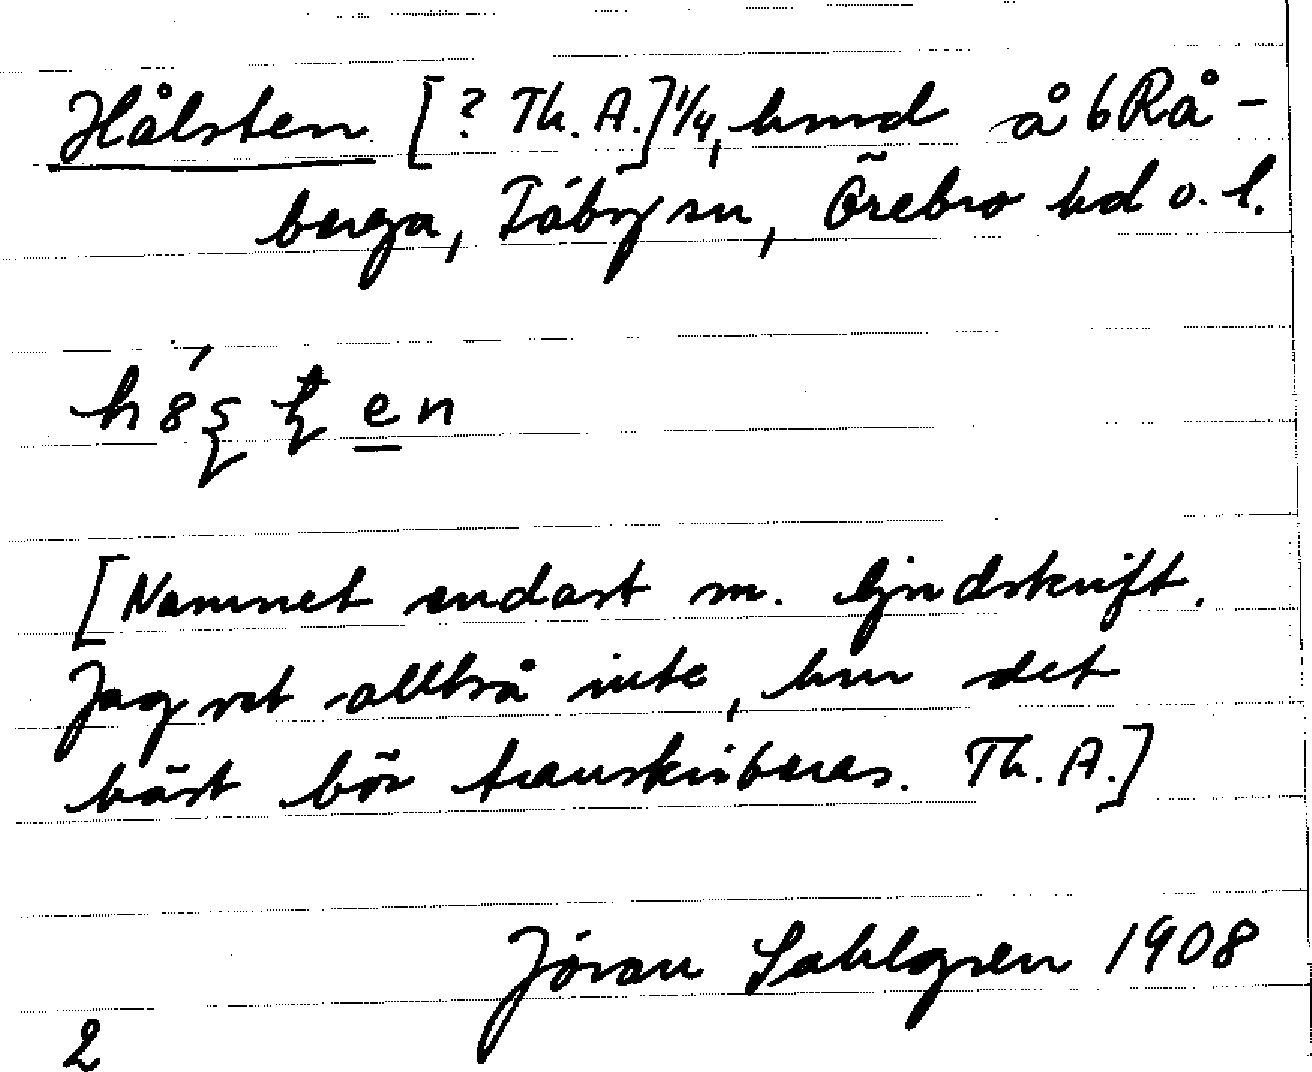 Hålsten [? Th. A.] 1/4, hmd å 6 Rå-
berga, Täby sn, Örebro hd o. l.
[Namnet endast m. ljudskrift.
Jag vet alltså inte, hur det
bäst bör transkriberas. Th. A.]
Jöran Sahlgren 1908
2